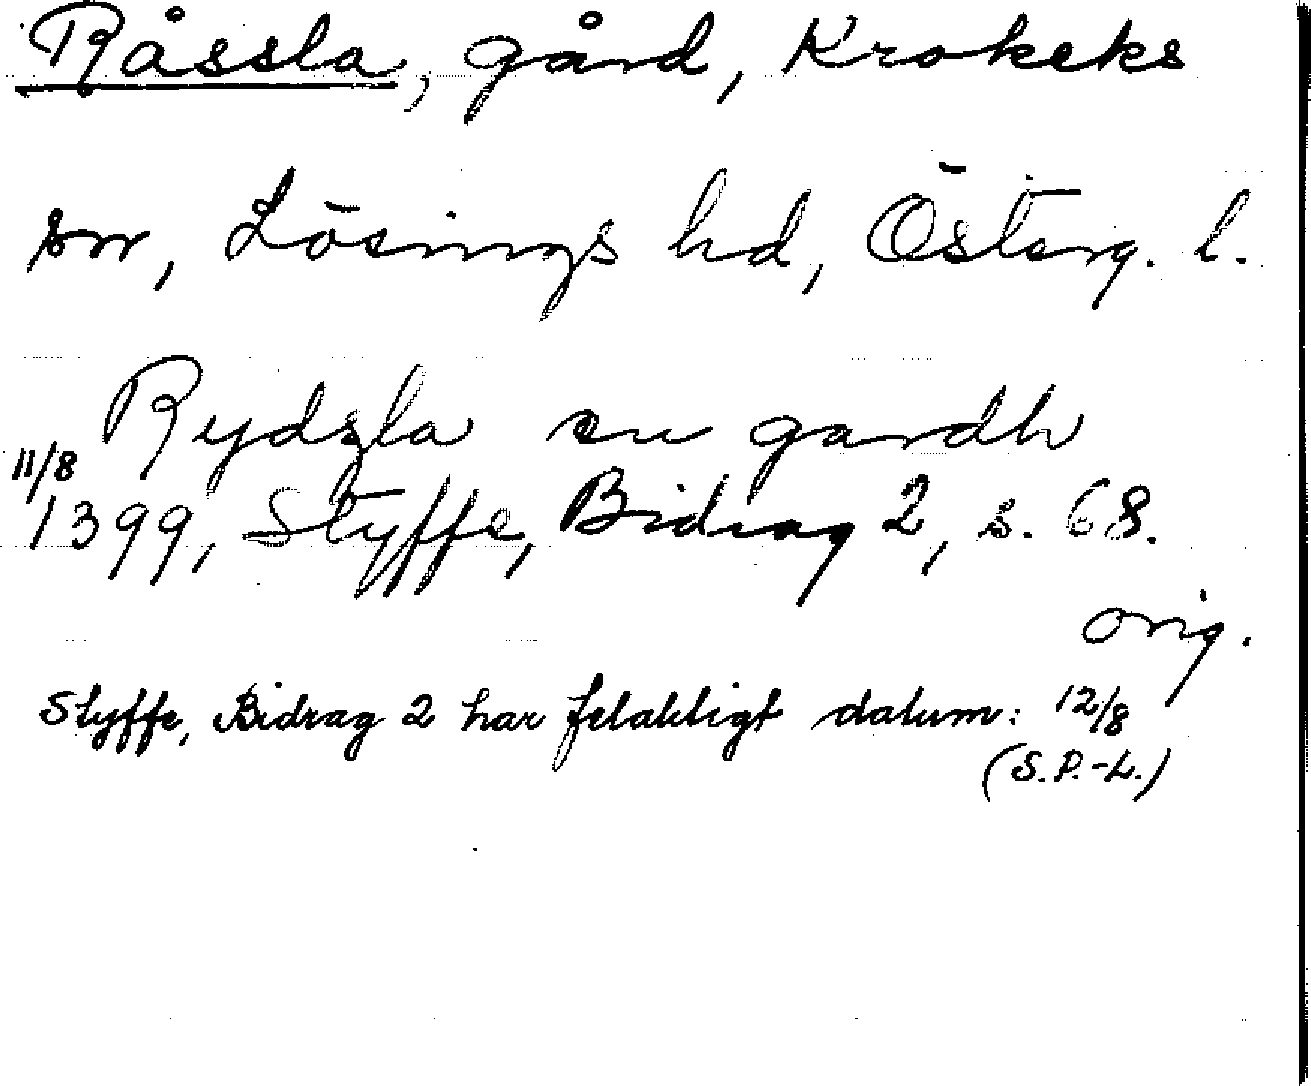 Råssla, gård, Krokeks
sn, Lösings hd, Österg. l.
Rydzla en gardh
11/8
1399, Styffe, Bidrag 2, s. 68.
orig.
Styffe, Bidrag 2 har felaktigt datum: 12/8
(S.P.-L.)